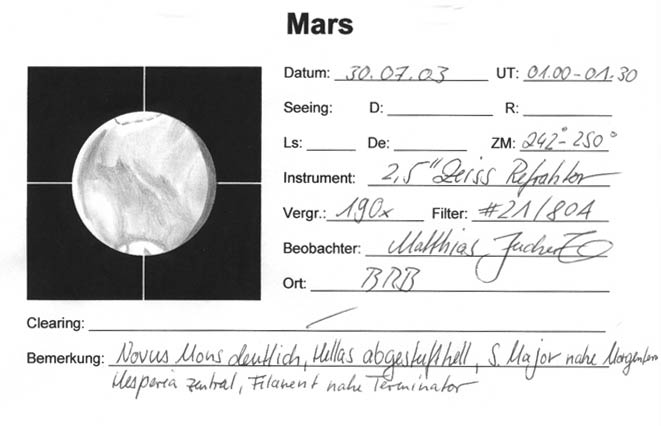 Mars
Datum: 30.07.03 UT: 01.00-01.30
Seeing: D: R:
Ls: De: ZM: 242°-250°
Instrument: 2,5" Zeiss Refraktor
Vergr.: 190x Filter: #21/80A
Beobachter: Matthias
Ort: BRB
Clearing:
Bemerkung: Novus Mons deutlich, Hellas abgestuft hell, S. Major nahe
Hesperia zentral, Filament nahe Terminator